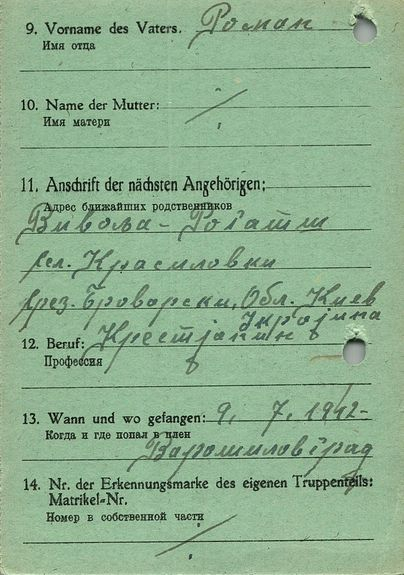 9. Vorname des Vaters. Роман
Имя отца
10. Name der Mutter: /
Имя матери
11. Anschrift der nächsten Angehörigen:
Адрес ближайших родственников
Вивоља - Рогатш
сел. Красиловки
срез. Броварски, Обл. Киев
Украјина
12. Beruf: Крестјанин
Профессия
13. Wann und wo gefangen: 9. 7. 1942-
Когда и где попал в плен
Варошиловград
14. Nr. der Erkennungsmarke des eigenen Truppenteils:
Matrikel-Nr.
Номер в собственной части
/